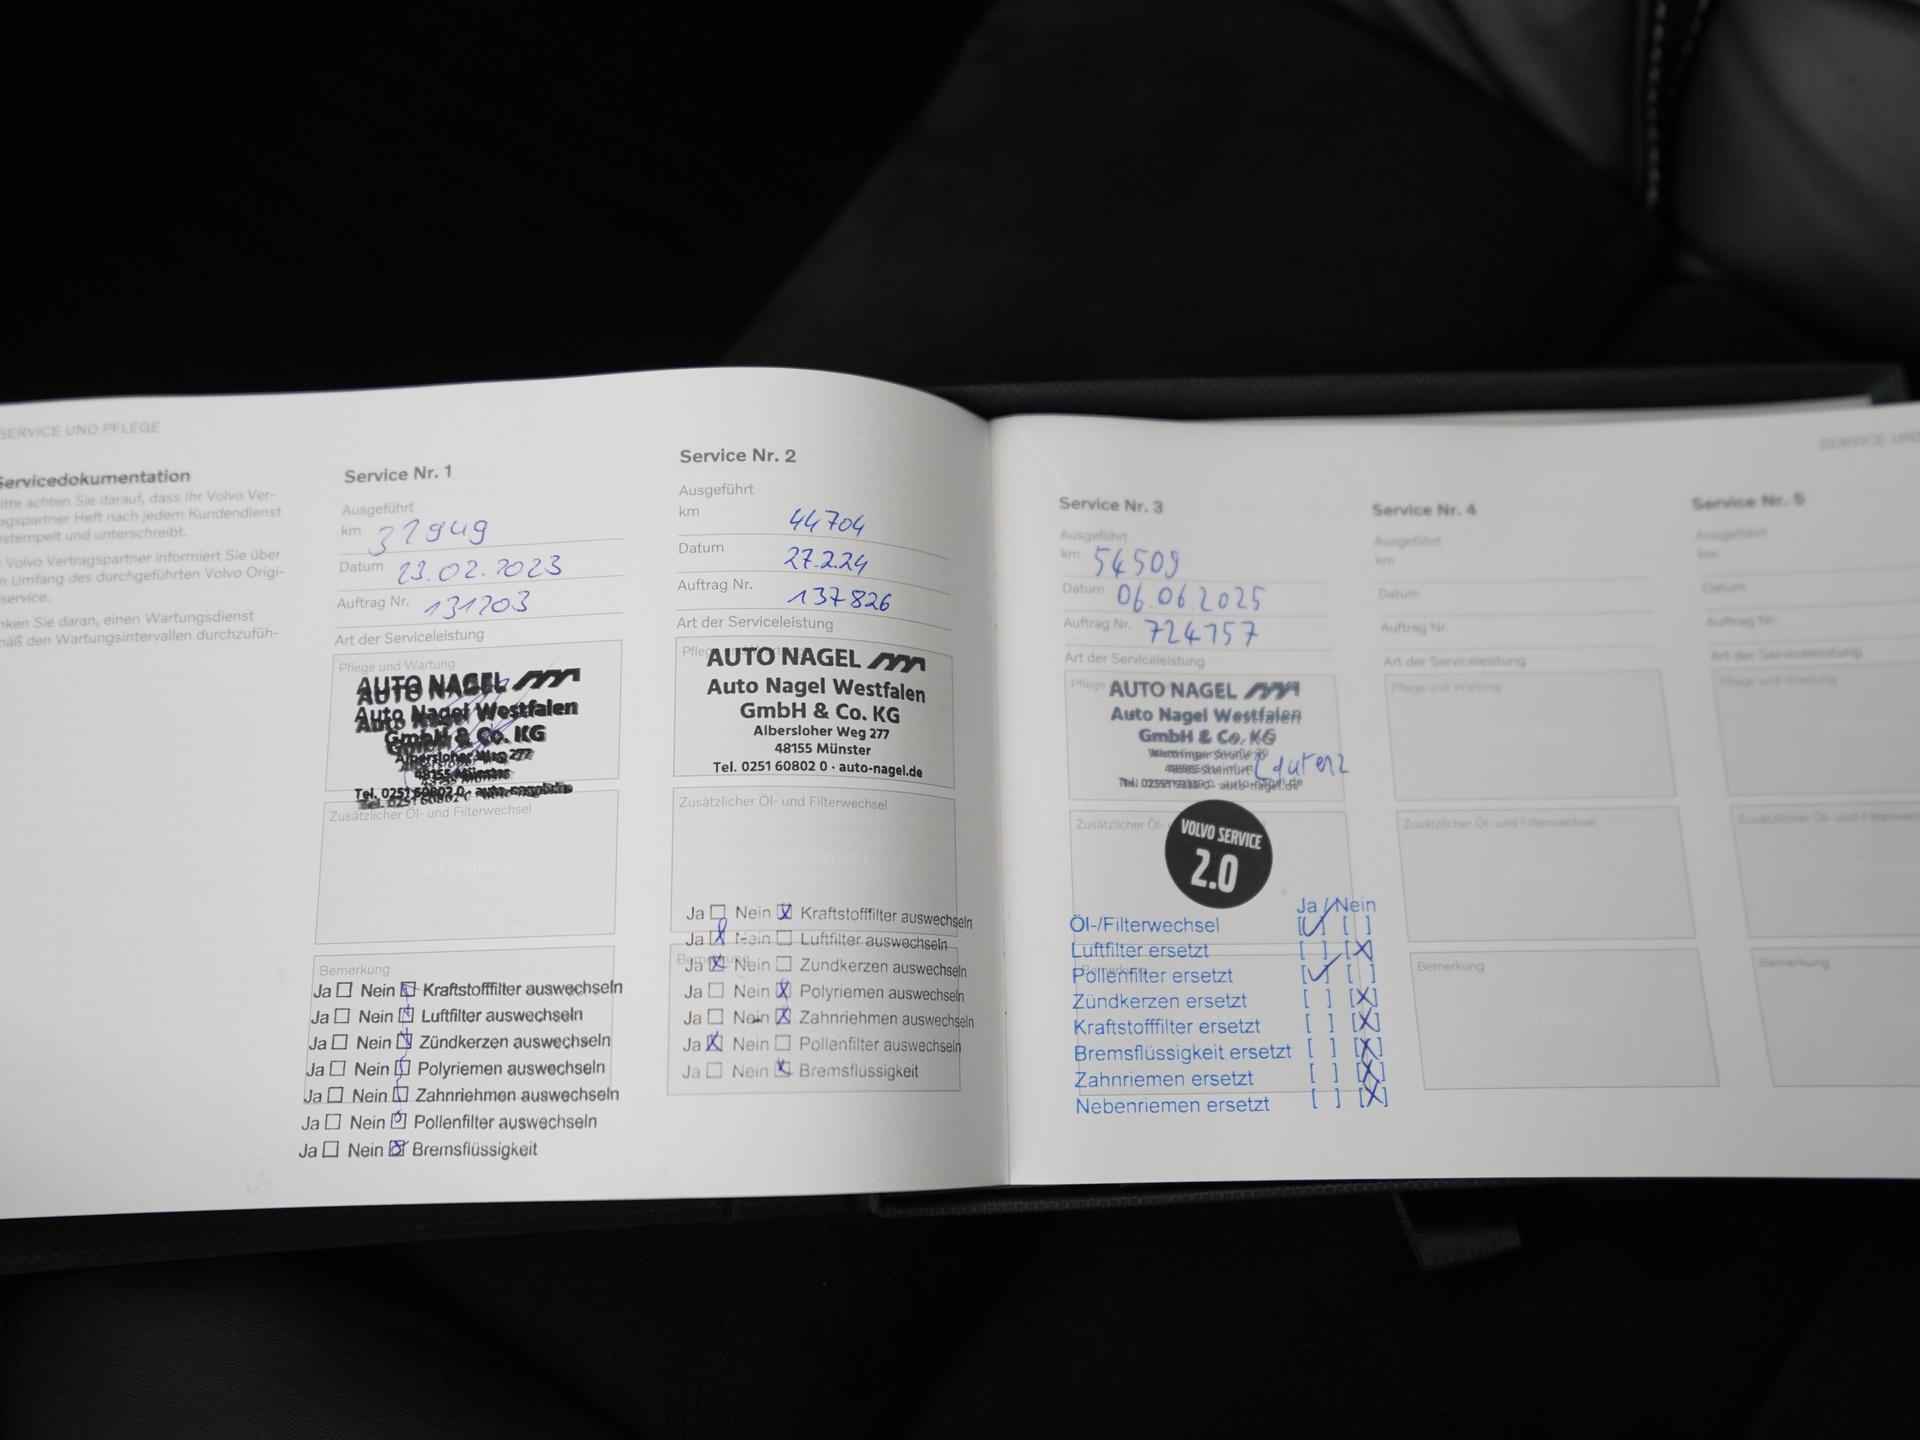 SERVICE UND PFLEGE
Servicedokumentation
itte achten Sie darauf, dass Ihr Volvo Ver-
agspartner Heft nach jedem Kundendienst
stempelt und unterschreibt.
Volvo Vertragspartner informiert Sie über
n Umfang des durchgeführten Volvo Origi-
service.
nken Sie daran, einen Wartungsdienst
mäß den Wartungsintervallen durchzufüh-
Service Nr. 1
Ausgeführt
km 31949
Datum 23.02.2023
Auftrag Nr. 131203
Art der Serviceleistung
Pflege und Wartung
AUTO NAGEL
Auto Nagel Westfalen
GmbH & Co. KG
Albersloher Weg 277
48155 Münster
Tel. 0251 60802 0 · auto-nagel.de
Zusätzlicher Öl- und Filterwechsel
Bemerkung
Ja Nein Kraftstofffilter auswechseln
Ja Nein Luftfilter auswechseln
Ja Nein Zündkerzen auswechseln
Ja Nein Polyriemen auswechseln
Ja Nein Zahnriehmen auswechseln
Ja Nein Pollenfilter auswechseln
Ja Nein Bremsflüssigkeit
Service Nr. 2
Ausgeführt
km 44704
Datum 27.2.24
Auftrag Nr. 137826
Art der Serviceleistung
AUTO NAGEL
Auto Nagel Westfalen
GmbH & Co. KG
Albersloher Weg 277
48155 Münster
Tel. 0251 60802 0 · auto-nagel.de
Zusätzlicher Öl- und Filterwechsel
Ja Nein Kraftstofffilter auswechseln
Ja Nein Luftfilter auswechseln
Ja Nein Zündkerzen auswechseln
Ja Nein Polyriemen auswechseln
Ja Nein Zahnriehmen auswechseln
Ja Nein Pollenfilter auswechseln
Ja Nein Bremsflüssigkeit
Service Nr. 3
Ausgeführt
km 54509
Datum 06.06.2025
Auftrag Nr. 724757
Art der Serviceleistung
Pflege
AUTO NAGEL
Auto Nagel Westfalen
GmbH & Co. KG
auto-nagel.de
Zusätzlicher Öl-
VOLVO SERVICE
2.0
Ja / Nein
Öl-/Filterwechsel [ ] [ ]
Luftfilter ersetzt [ ] [X]
Pollenfilter ersetzt [ ] [ ]
Zündkerzen ersetzt [ ] [X]
Kraftstofffilter ersetzt [ ] [X]
Bremsflüssigkeit ersetzt [ ] [X]
Zahnriemen ersetzt [ ] [X]
Nebenriemen ersetzt [ ] [X]
Service Nr. 4
Ausgeführt
km
Datum
Auftrag Nr.
Art der Serviceleistung
Pflege und Wartung
Zusätzlicher Öl- und Filterwechsel
Bemerkung
SERVICE UND
Service Nr. 5
Ausgeführt
km
Datum
Auftrag Nr.
Art der Serviceleistung
Pflege und Wartung
Zusätzlicher Öl- und Filterwechsel
Bemerkung